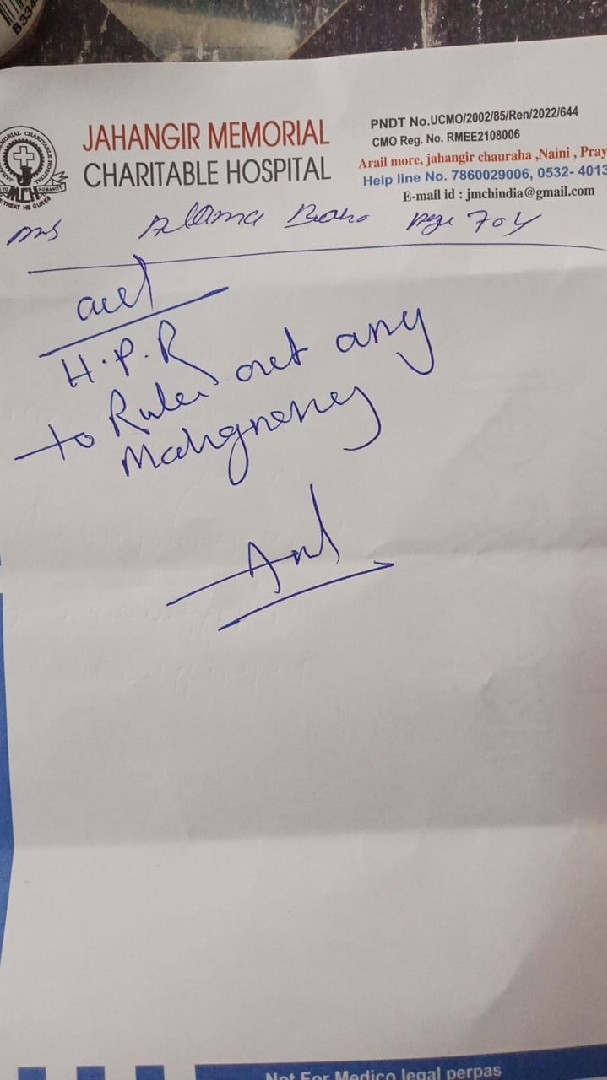 JAHANGIR MEMORIAL
CHARITABLE HOSPITAL
PNDT No.UCMO/2002/85/Ren/2022/644
CMO Reg. No. RMEE2108006
Arail more, jahangir chauraha ,Naini , Pray
Help line No. 7860029006, 0532- 4013
E-mail id : jmchindia@gmail.com
Bano age 70 y
H.P.R
to Rule out any
Malignency
Not For Medico legal perpas